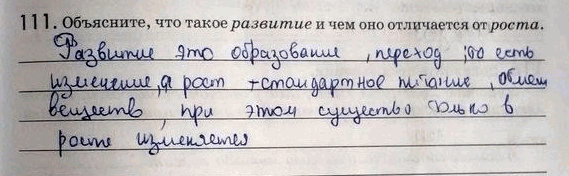 111. Объясните, что такое развитие и чем оно отличается от роста.
Развитие это образование, переход, то есть
изменение, а рост - стандартное питание, обмен
веществ, при этом существо только в
росте изменяется